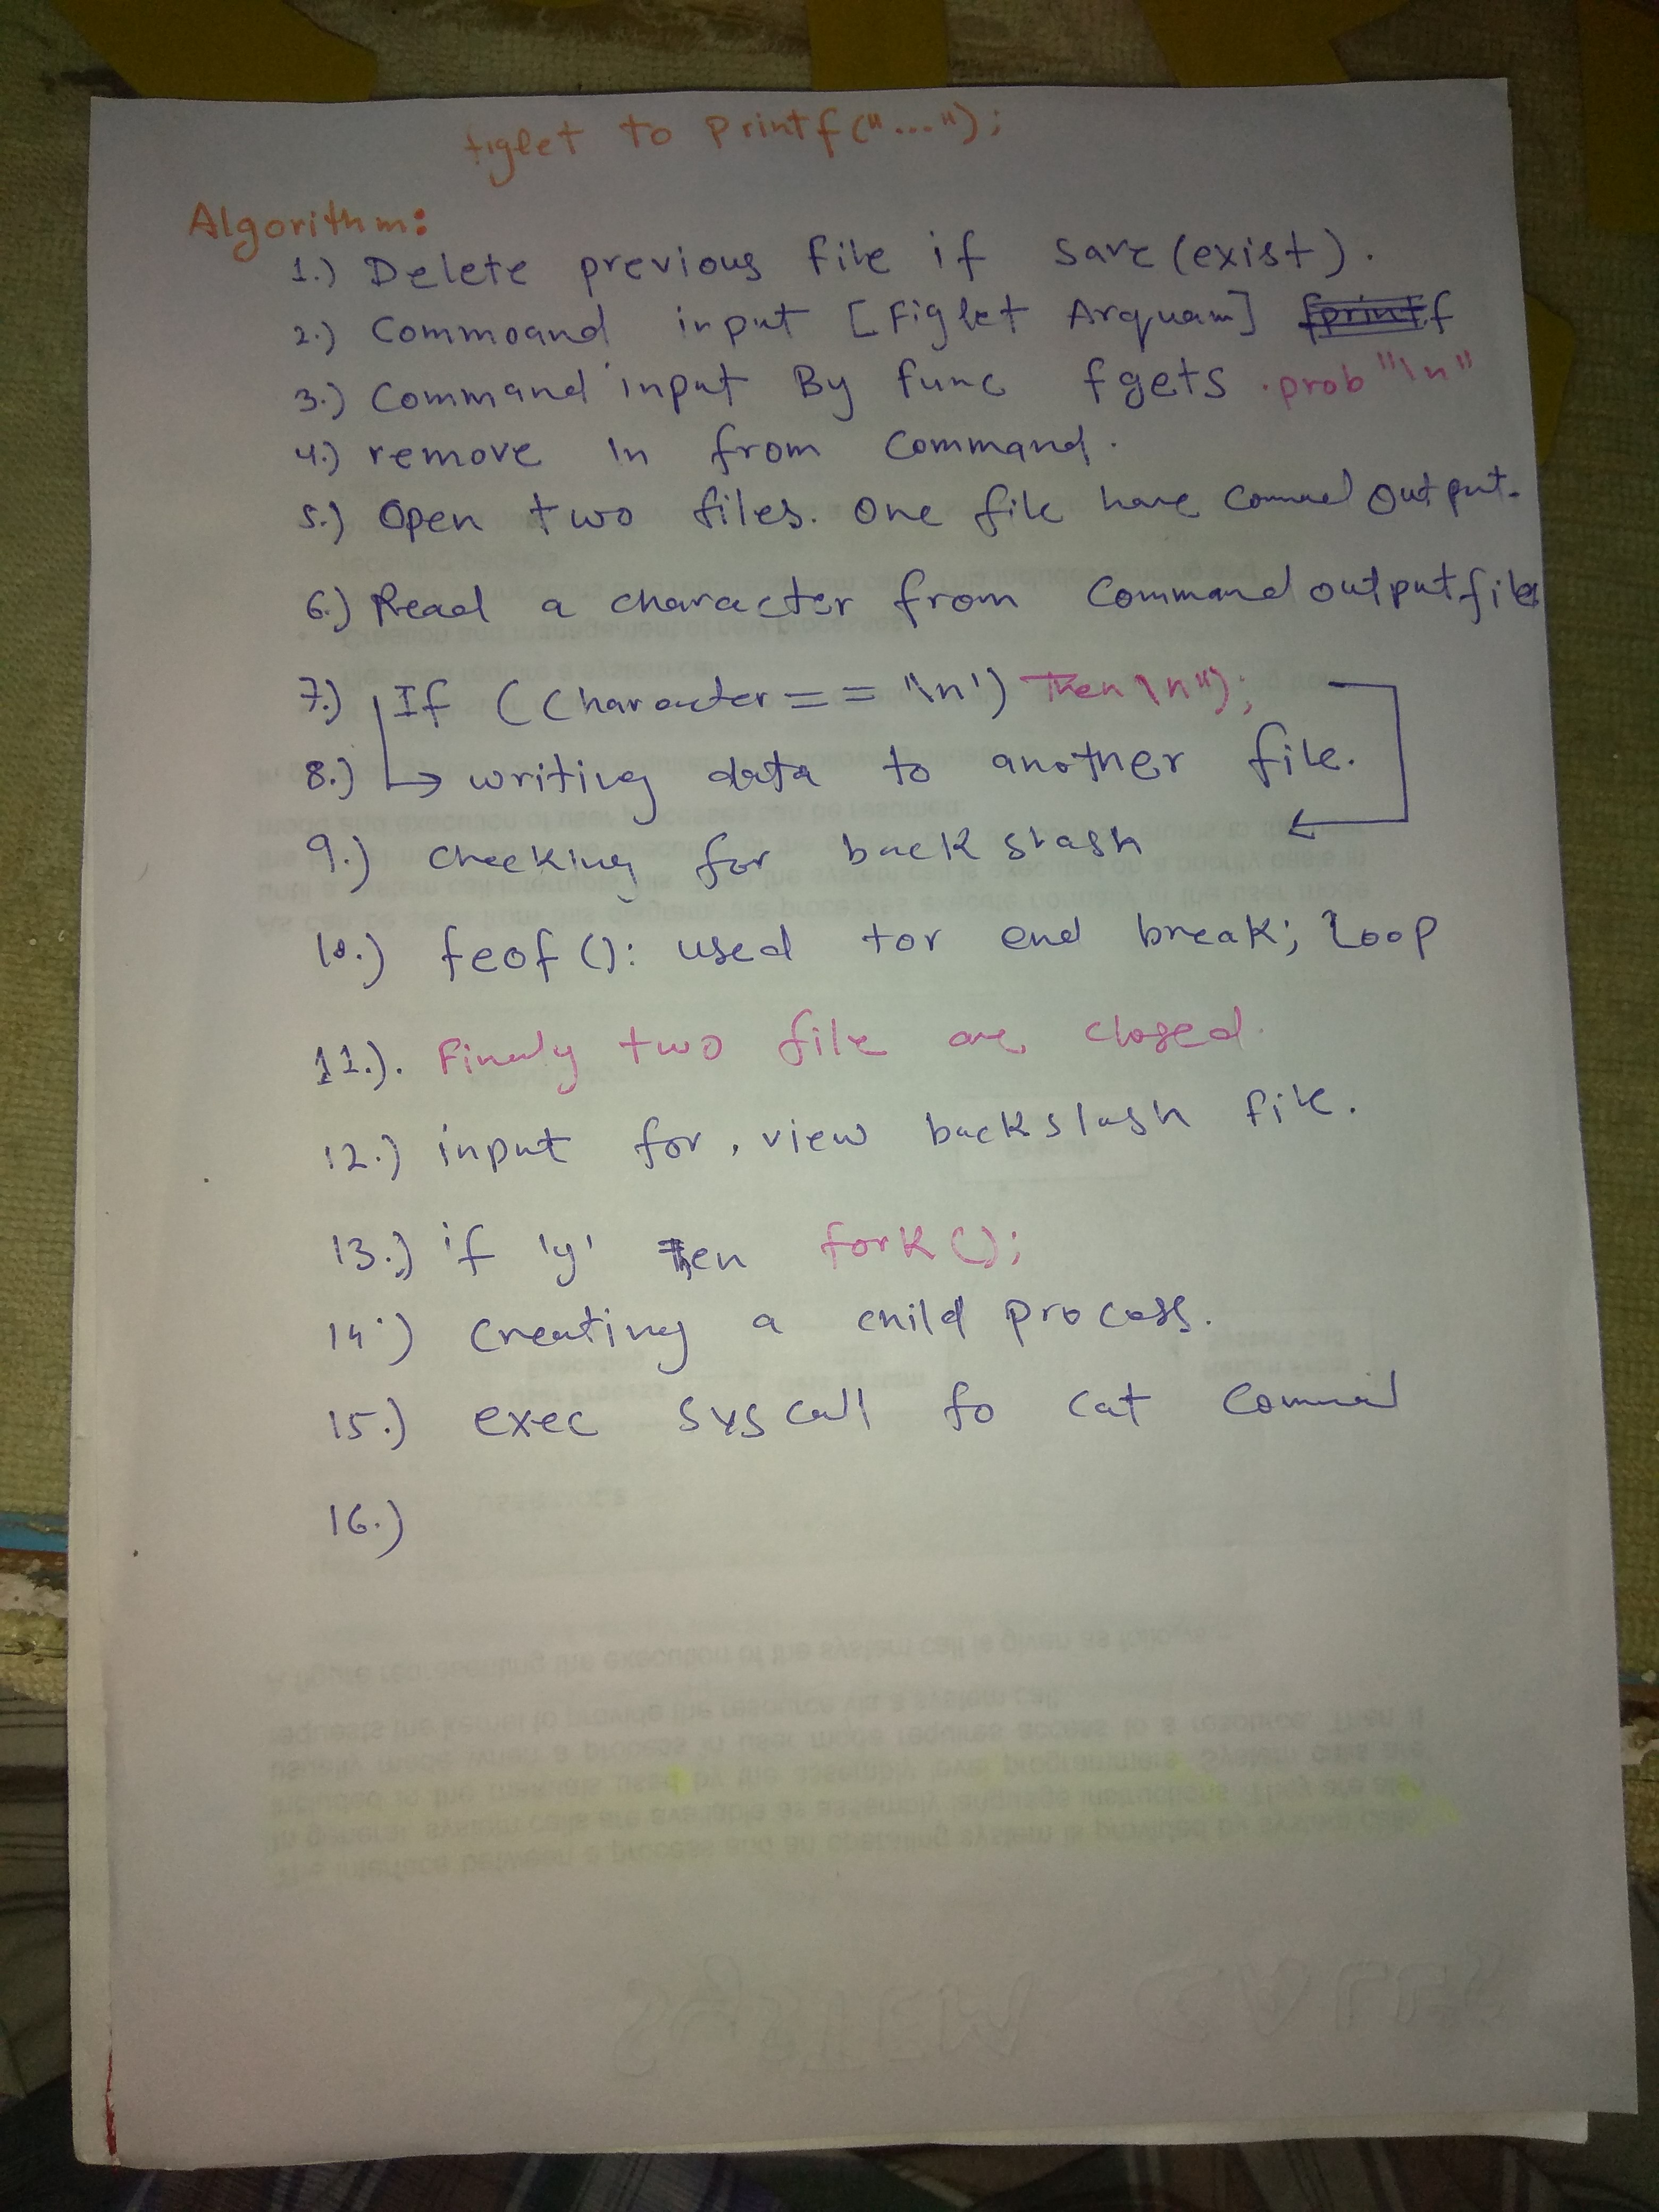 figlet to printf("...");
Algorithm:
1.) Delete previous file if save (exist).
2.) Commoand input [Figlet Arquam]
3.) Command input By func fgets . prob "\n"
4.) remove \n from command.
5.) Open two files. One file have Command output.
6.) Read a character from Command output file
7.) If (Character == '\n') Then \n");
8.) writing data to another file.
9.) checking for back slash
10.) feof (): used for end break; Loop
11.). Finaly two file are closed.
12.) input for, view backslash file.
13.) if 'y' then fork ();
14.) Creating a child process.
15.) exec sys call fo cat Command
16.)